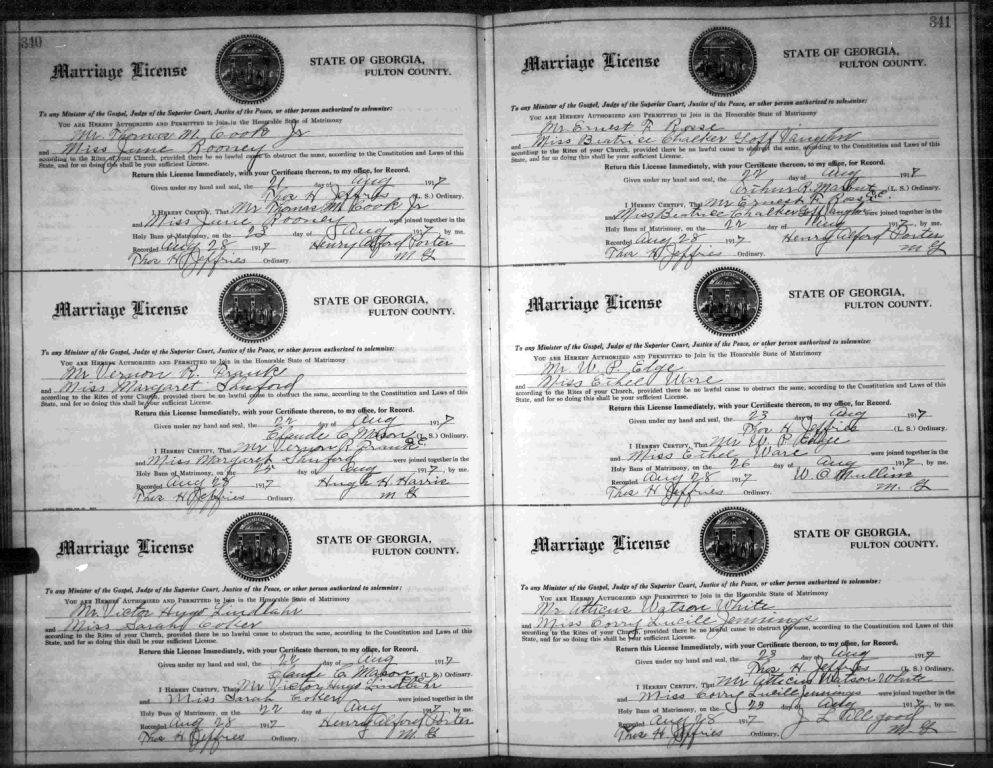 340
Marriage License
STATE OF GEORGIA,
FULTON COUNTY.
To any Minister of the Gospel, Judge of the Superior Court, Justice of the Peace, or other person authorized to solemnize:
YOU ARE HEREBY AUTHORIZED AND PERMITTED to Join in the Honorable State of Matrimony
Mr Thomas M. Cook Jr
and Miss June Rooney
according to the Rites of your Church, provided there be no lawful cause to obstruct the same, according to the Constitution and Laws of this
State, and for so doing this shall be your sufficient License.
Return this License Immediately, with your Certificate thereon, to my office, for Record.
Given under my hand and seal, the 21 day of Aug 1917
Thos H Jeffries (L. S.) Ordinary.
I HEREBY CERTIFY, That Mr Thomas M. Cook Jr
and Miss June Rooney were joined together in the
Holy Bans of Matrimony, on the 23 day of Aug 1917, by me.
Recorded Aug 28 1917 Henry Alford Porter
Thos H Jeffries Ordinary. M G
Marriage License
STATE OF GEORGIA,
FULTON COUNTY.
To any Minister of the Gospel, Judge of the Superior Court, Justice of the Peace, or other person authorized to solemnize:
YOU ARE HEREBY AUTHORIZED AND PERMITTED to Join in the Honorable State of Matrimony
Mr Vernon R. Frank
and Miss Margaret Sanford
according to the Rites of your Church, provided there be no lawful cause to obstruct the same, according to the Constitution and Laws of this
State, and for so doing this shall be your sufficient License.
Return this License Immediately, with your Certificate thereon, to my office, for Record.
Given under my hand and seal, the 22 day of Aug 1917
Claude C. Mason (L. S.) Ordinary.
I HEREBY CERTIFY, That Mr Vernon R. Frank
and Miss Margaret Sanford were joined together in the
Holy Bans of Matrimony, on the 25 day of Aug 1917, by me.
Recorded Aug 28 1917 Hugh H. Harris
Thos H Jeffries Ordinary. M G
Marriage License
STATE OF GEORGIA,
FULTON COUNTY.
To any Minister of the Gospel, Judge of the Superior Court, Justice of the Peace, or other person authorized to solemnize:
YOU ARE HEREBY AUTHORIZED AND PERMITTED to Join in the Honorable State of Matrimony
Mr Victor Hugo Lindlahr
and Miss Sarah Coker
according to the Rites of your Church, provided there be no lawful cause to obstruct the same, according to the Constitution and Laws of this
State, and for so doing this shall be your sufficient License.
Return this License Immediately, with your Certificate thereon, to my office, for Record.
Given under my hand and seal, the 22 day of Aug 1917
Claude C. Mason (L. S.) Ordinary.
I HEREBY CERTIFY, That Mr Victor Hugo Lindlahr
and Miss Sarah Coker were joined together in the
Holy Bans of Matrimony, on the 22 day of Aug 1917, by me.
Recorded Aug 28 1917 Henry Alford Porter
Thos H Jeffries Ordinary. M G
341
Marriage License
STATE OF GEORGIA,
FULTON COUNTY.
To any Minister of the Gospel, Judge of the Superior Court, Justice of the Peace, or other person authorized to solemnize:
YOU ARE HEREBY AUTHORIZED AND PERMITTED to Join in the Honorable State of Matrimony
Mr Ernest F. Rosse
and Miss Beatrice Chalker Goff Vaughn
according to the Rites of your Church, provided there be no lawful cause to obstruct the same, according to the Constitution and Laws of this
State, and for so doing this shall be your sufficient License.
Return this License Immediately, with your Certificate thereon, to my office, for Record.
Given under my hand and seal, the 22 day of Aug 1917
Arthur R. (L. S.) Ordinary.
I HEREBY CERTIFY, That Mr Ernest F. Rosse
and Miss Beatrice Chalker Goff Vaughn were joined together in the
Holy Bans of Matrimony, on the 22 day of Aug 1917, by me.
Recorded Aug 28 1917 Henry Alford Porter
Thos H Jeffries Ordinary. M G
Marriage License
STATE OF GEORGIA,
FULTON COUNTY.
To any Minister of the Gospel, Judge of the Superior Court, Justice of the Peace, or other person authorized to solemnize:
YOU ARE HEREBY AUTHORIZED AND PERMITTED to Join in the Honorable State of Matrimony
Mr W. P. Edge
and Miss Ethel Ware
according to the Rites of your Church, provided there be no lawful cause to obstruct the same, according to the Constitution and Laws of this
State, and for so doing this shall be your sufficient License.
Return this License Immediately, with your Certificate thereon, to my office, for Record.
Given under my hand and seal, the 23 day of Aug 1917
Thos H Jeffries (L. S.) Ordinary.
I HEREBY CERTIFY, That Mr W. P. Edge
and Miss Ethel Ware were joined together in the
Holy Bans of Matrimony, on the 26 day of Aug 1917, by me.
Recorded Aug 28 1917 W. O. Mullins
Thos H Jeffries Ordinary. M. G
Marriage License
STATE OF GEORGIA,
FULTON COUNTY.
To any Minister of the Gospel, Judge of the Superior Court, Justice of the Peace, or other person authorized to solemnize:
YOU ARE HEREBY AUTHORIZED AND PERMITTED to Join in the Honorable State of Matrimony
Mr Atticus Watson White
and Miss Corry Lucill Jennings
according to the Rites of your Church, provided there be no lawful cause to obstruct the same, according to the Constitution and Laws of this
State, and for so doing this shall be your sufficient License.
Return this License Immediately, with your Certificate thereon, to my office, for Record.
Given under my hand and seal, the 23 day of Aug 1917
Thos H. Jeffries (L. S.) Ordinary.
I HEREBY CERTIFY, That Mr Atticus Watson White
and Miss Corry Lucille Jennings were joined together in the
Holy Bans of Matrimony, on the 23 day of Aug 1917, by me.
Recorded Aug 28 1917 J L Allgood
Thos H Jeffries Ordinary. M G